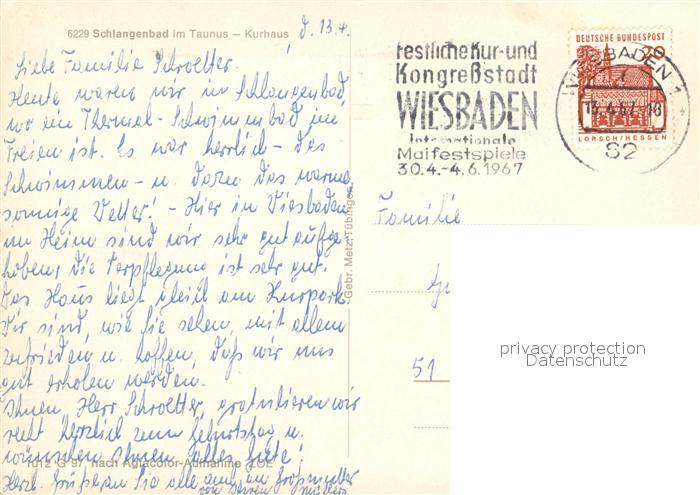 6229 Schlangenbad im Taunus – Kurhaus
d. 13.4.
Liebe Familie Schroetter.
Heute waren wir in Schlangenbad,
wo ein Thermal-Schwimmbad im
Freien ist. Es war herrlich – das
Schwimmen – u. dazu das warme,
sonnige Wetter! – Hier in Wiesbaden
im Heim sind wir sehr gut aufge-
hoben, die Verpflegung ist sehr gut.
Das Haus liegt gleich am Kurpark.
Wir sind, wie Sie sehen, mit allem
zufrieden u. hoffen, daß wir uns
gut erholen werden.
Ihnen, Herr Schroetter, gratulieren wir
recht herzlich zum Geburtstag u.
wünschen Ihnen alles Gute!
Herzl. Grüße an Sie alle auch an Großmutter
von Ihren
1012 G 97 nach Agfacolor-Aufnahme LOE
Gebr. Metz, Tübingen
festliche Kur- und
Kongreßstadt
WIESBADEN
Internationale
Maifestspiele
30.4.-4.6.1967
DEUTSCHE BUNDESPOST
20
LORSCH/HESSEN
WIESBADEN 1
13.4.67.-18
S2
Familie
51
privacy protection
Datenschutz